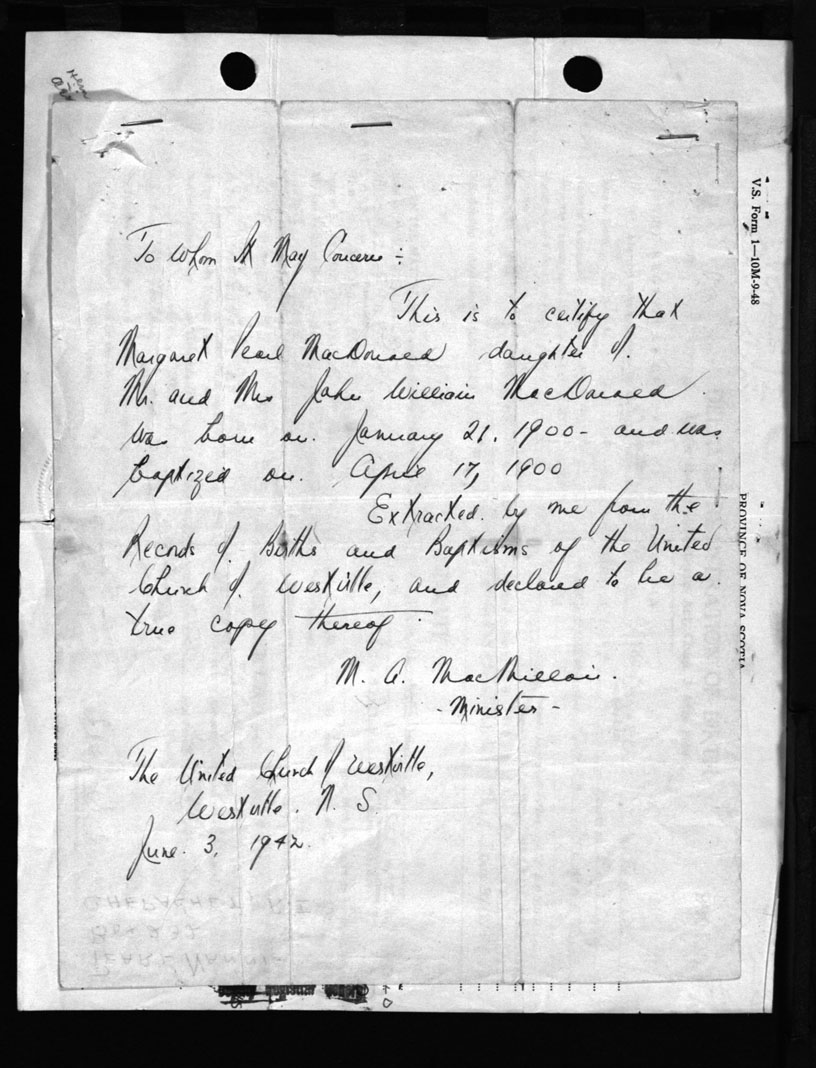 To Whom It May Concern :-
This is to certify that
Margaret Pearl MacDonald daughter of
Mr. and Mrs John William MacDonald
was born on January 21, 1900 - and was
baptized on April 17, 1900
Extracted by me from the
Records of Births and Baptisms of the United
Church of Westville, and declared to be a
true copy thereof.
M. A. MacMillan.
- Minister -
The United Church of Westville,
Westville. N. S.
June 3, 1942.
V.S. Form 1—10M-9-48
PROVINCE OF NOVA SCOTIA
CHEPACHET, R.I.
Box 232